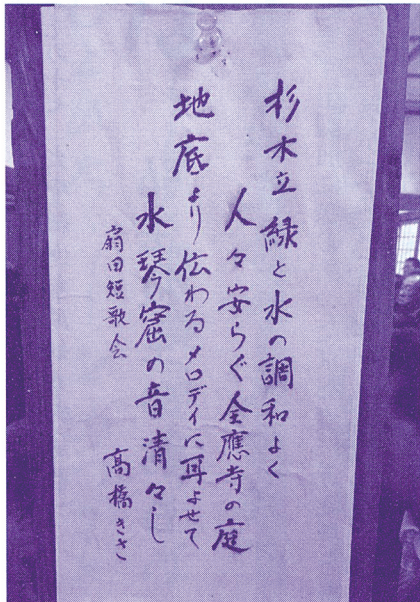 杉木立緑と水の調和よく
人々安らぐ全應寺の庭
地底より伝わるメロディに耳よせて
水琴窟の音清々し
扇田短歌会 高橋きさ